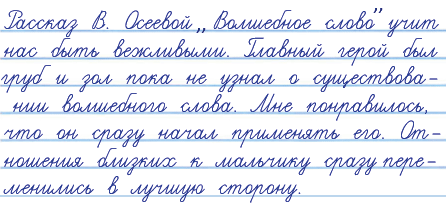 Рассказ В. Осеевой „Волшебное слово” учит
нас быть вежливыми. Главный герой был
груб и зол пока не узнал о существова-
нии волшебного слова. Мне понравилось,
что он сразу начал применять его. От-
ношения близких к мальчику сразу пере-
менились в лучшую сторону.